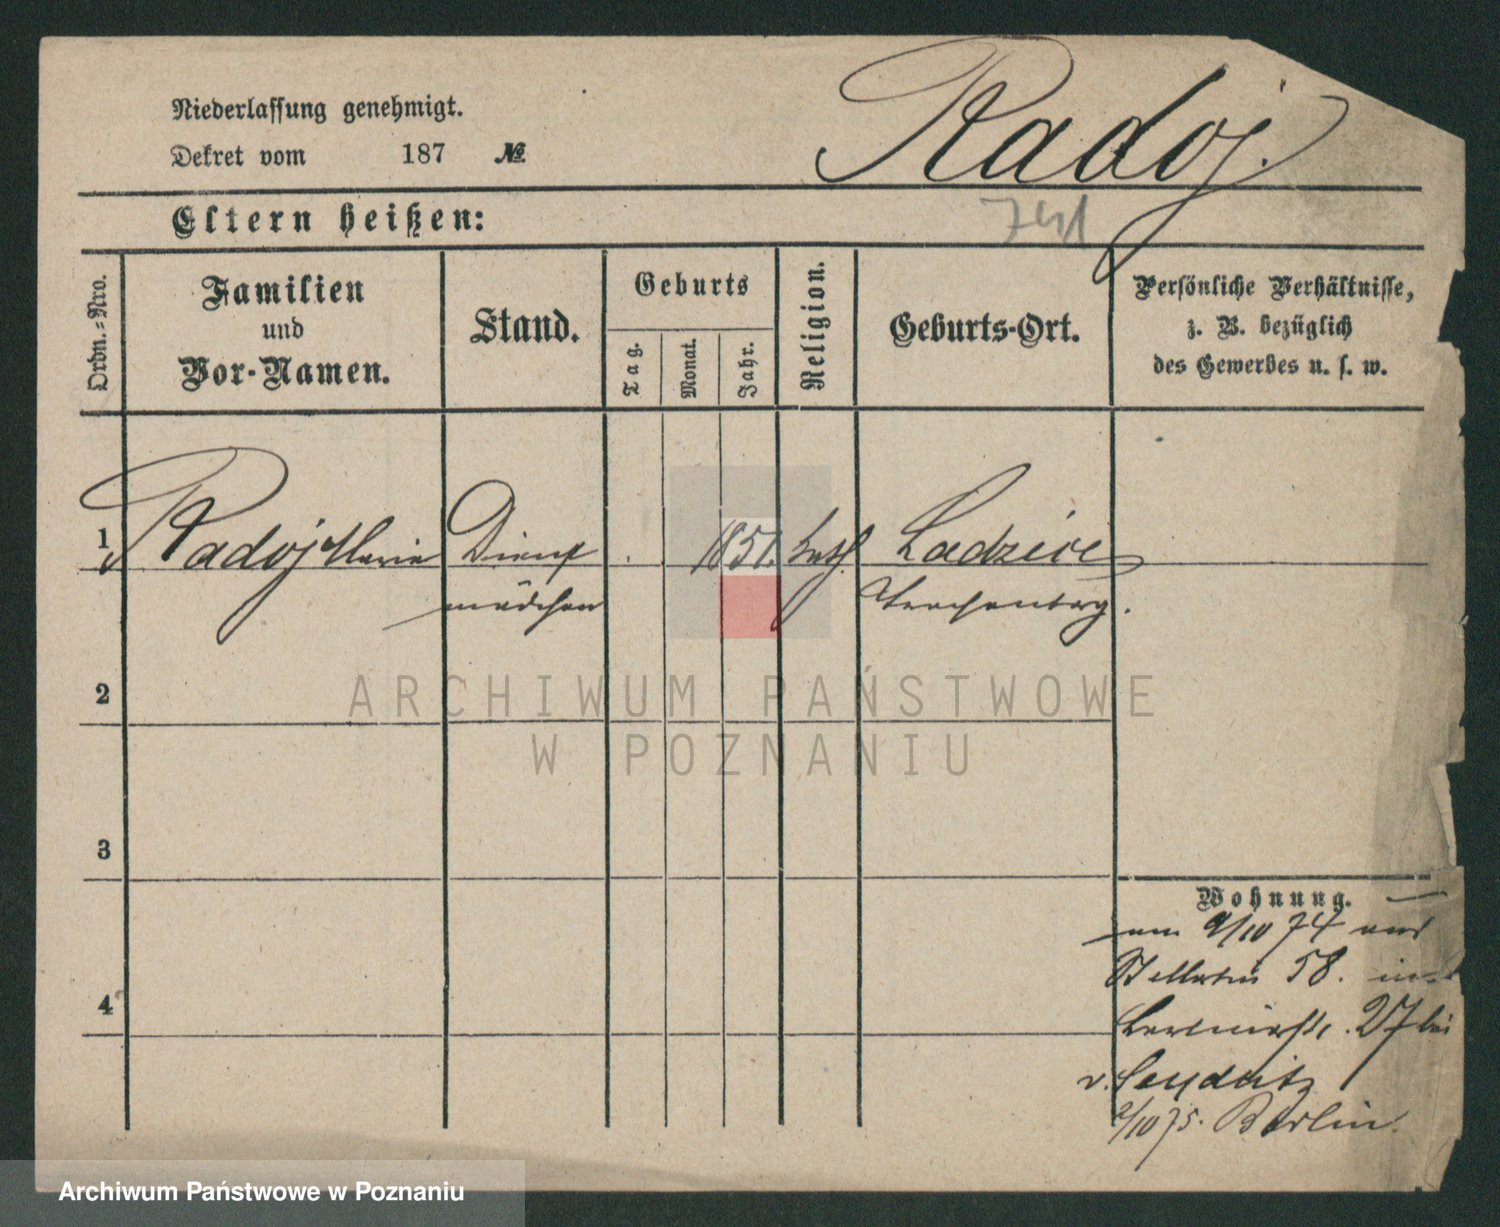 Niederlassung genehmigt.
Radoj.
Dekret vom 187 №
Eltern heißen:
Ordn.-Nro.
Familien
und
Vor-Namen.
Stand.
Geburts
Tag.
Monat.
Jahr.
Religion.
Geburts-Ort.
Persönliche Verhältnisse,
z. B. bezüglich
des Gewerbes u. s. w.
1 Radoj Marie Dienst 1851. kath. Ladzice
mädchen
2
ARCHIWUM PAŃSTWOWE
W POZNANIU
3
Wohnung.
am 9/10 74 aus
58.
4
27 bei
v.
2/10 75. Berlin.
Archiwum Państwowe w Poznaniu